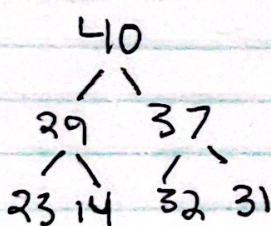 40
29 37
23 14 32 31